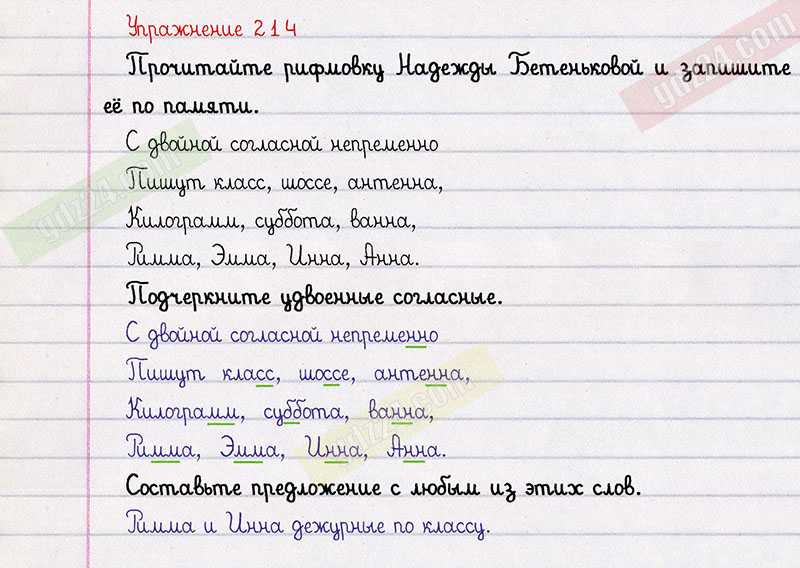 Упражнение 214
Прочитайте рифмовку Надежды Бетеньковой и запишите
её по памяти.
С двойной согласной непременно
Пишут класс, шоссе, антенна,
Килограмм, суббота, ванна,
Римма, Эмма, Инна, Анна.
Подчеркните удвоенные согласные.
С двойной согласной непременно
Пишут класс, шоссе, антенна,
Килограмм, суббота, ванна,
Римма, Эмма, Инна, Анна.
Составьте предложение с любым из этих слов.
Римма и Инна дежурные по классу.
gdz24.com
gdz24.com
gdz24.com